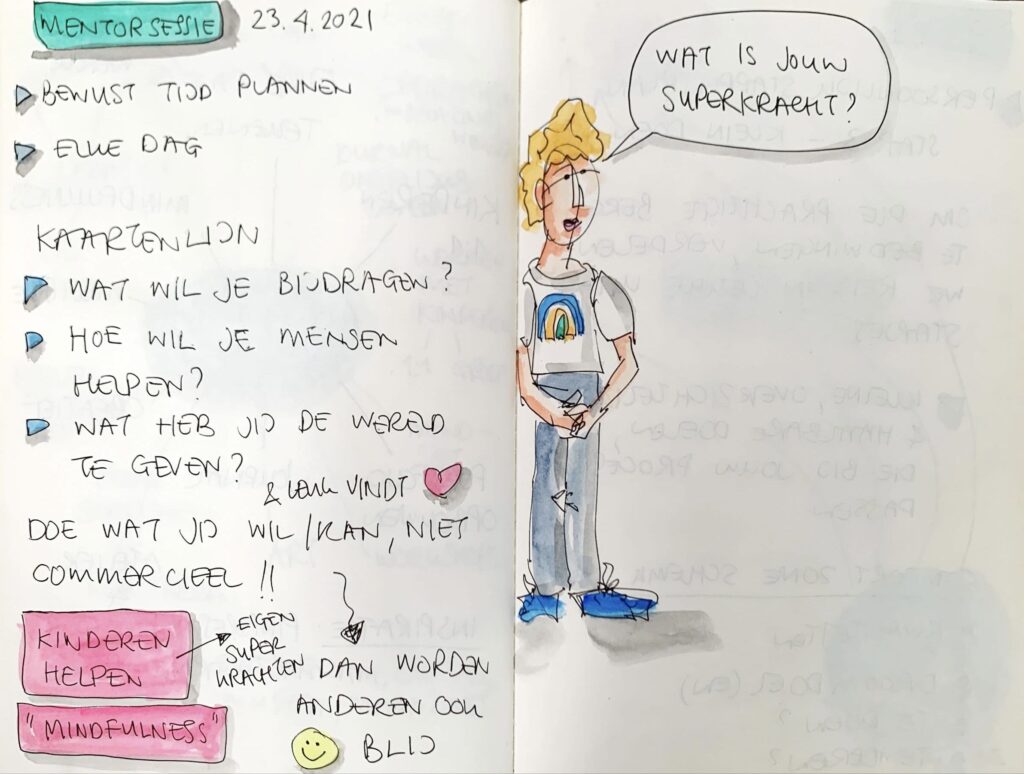 MENTORSESSIE 23.4.2021
BEWUST TIJD PLANNEN
ELKE DAG
KAARTENLIJN
WAT WIL JE BIJDRAGEN?
HOE WIL JE MENSEN
HELPEN?
WAT HEB JIJ DE WERELD
TE GEVEN?
& LEUK VINDT
DOE WAT JIJ WIL/KAN, NIET
COMMERCIEEL !!
KINDEREN
HELPEN
EIGEN
SUPER
KRACHTEN
"MINDFULNESS"
DAN WORDEN
ANDEREN OOK
BLIJ
WAT IS JOUW
SUPERKRACHT?